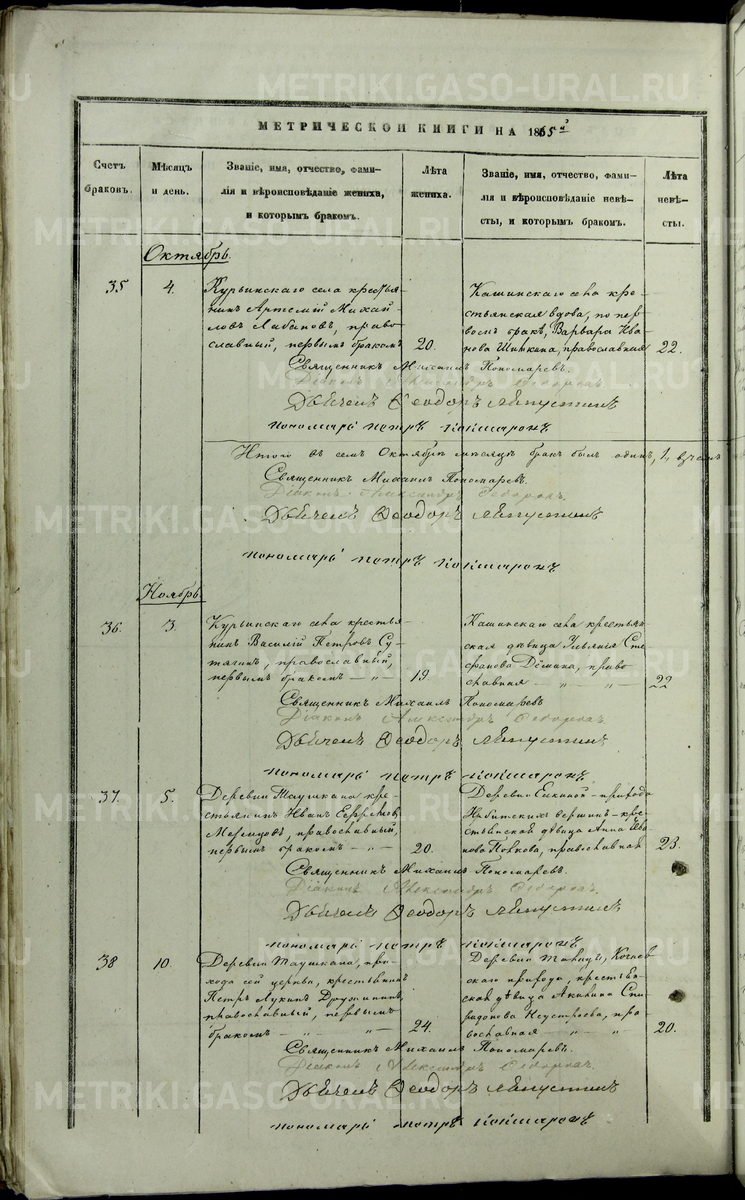 МЕТРИЧЕСКОЙ КНИГИ НА 1865й
Счетъ браковъ.
Мѣсяцъ и день.
Званіе, имя, отчество, фами-
лія и вѣроисповѣданіе жениха,
и которымъ бракомъ.
Лѣта жениха.
Званіе, имя, отчество, фами-
лія и вѣроисповѣданіе невѣ-
сты, и которымъ бракомъ.
Лѣта невѣ-
сты.
Октябрь.
35
4.
Курьинскаго села крестья-
нинъ Артемій Михай-
ловъ Лобановъ, право-
славный, первымъ бракомъ
20.
Кашинскаго села кре-
стьянская вдова, по пер-
вомъ бракѣ, Варвара Ива-
нова Шишкина, православная
22.
Священникъ Михаилъ Пономаревъ.
Діаконъ Александръ
Дьячекъ Ѳеодоръ
Пономарь Петръ
Итого въ семъ Октябрѣ мѣсяцѣ бракъ былъ одинъ, 1,
Священникъ Михаилъ Пономаревъ.
Діаконъ Александръ
Дьячекъ Ѳеодоръ
пономарь петръ
Ноябрь.
36.
3.
Курьинскаго села крестья-
нинъ Василій Петровъ Су-
тягинъ, православный,
первымъ бракомъ — „ —
19.
Кашинскаго села крестьян-
ская дѣвица Ульянія Сте-
фанова Демина, право-
славная — „ — „ —
22
Священникъ Михаилъ Пономаревъ
Діаконъ Александръ
Дьячекъ Ѳеодоръ
пономарь петръ
37.
5.
Деревни Таушкана кре-
стьянинъ Иванъ
православный,
первымъ бракомъ — „ —
20.
Деревни прихода
Ирбитскихъ вершинъ — кре-
стьянская дѣвица Анна Ива-
нова православная
23.
Священникъ Михаилъ Пономаревъ.
Діаконъ Александръ
Дьячекъ Ѳеодоръ
пономарь петръ
38
10.
Деревни Таушкана, при-
хода сей церкви, крестьянинъ
Петръ Лукинъ Дружининъ,
православный, первымъ
бракомъ — „ — „ —
24.
Деревни
прихода, крестьян-
ская дѣвица Акилина Спи-
ридонова Неустроева, пра-
вославная — „ — „ —
20.
Священникъ Михаилъ Пономаревъ.
Діаконъ Александръ
Дьячекъ Ѳеодоръ
пономарь петръ
METRIKI.GASO-URAL.RU